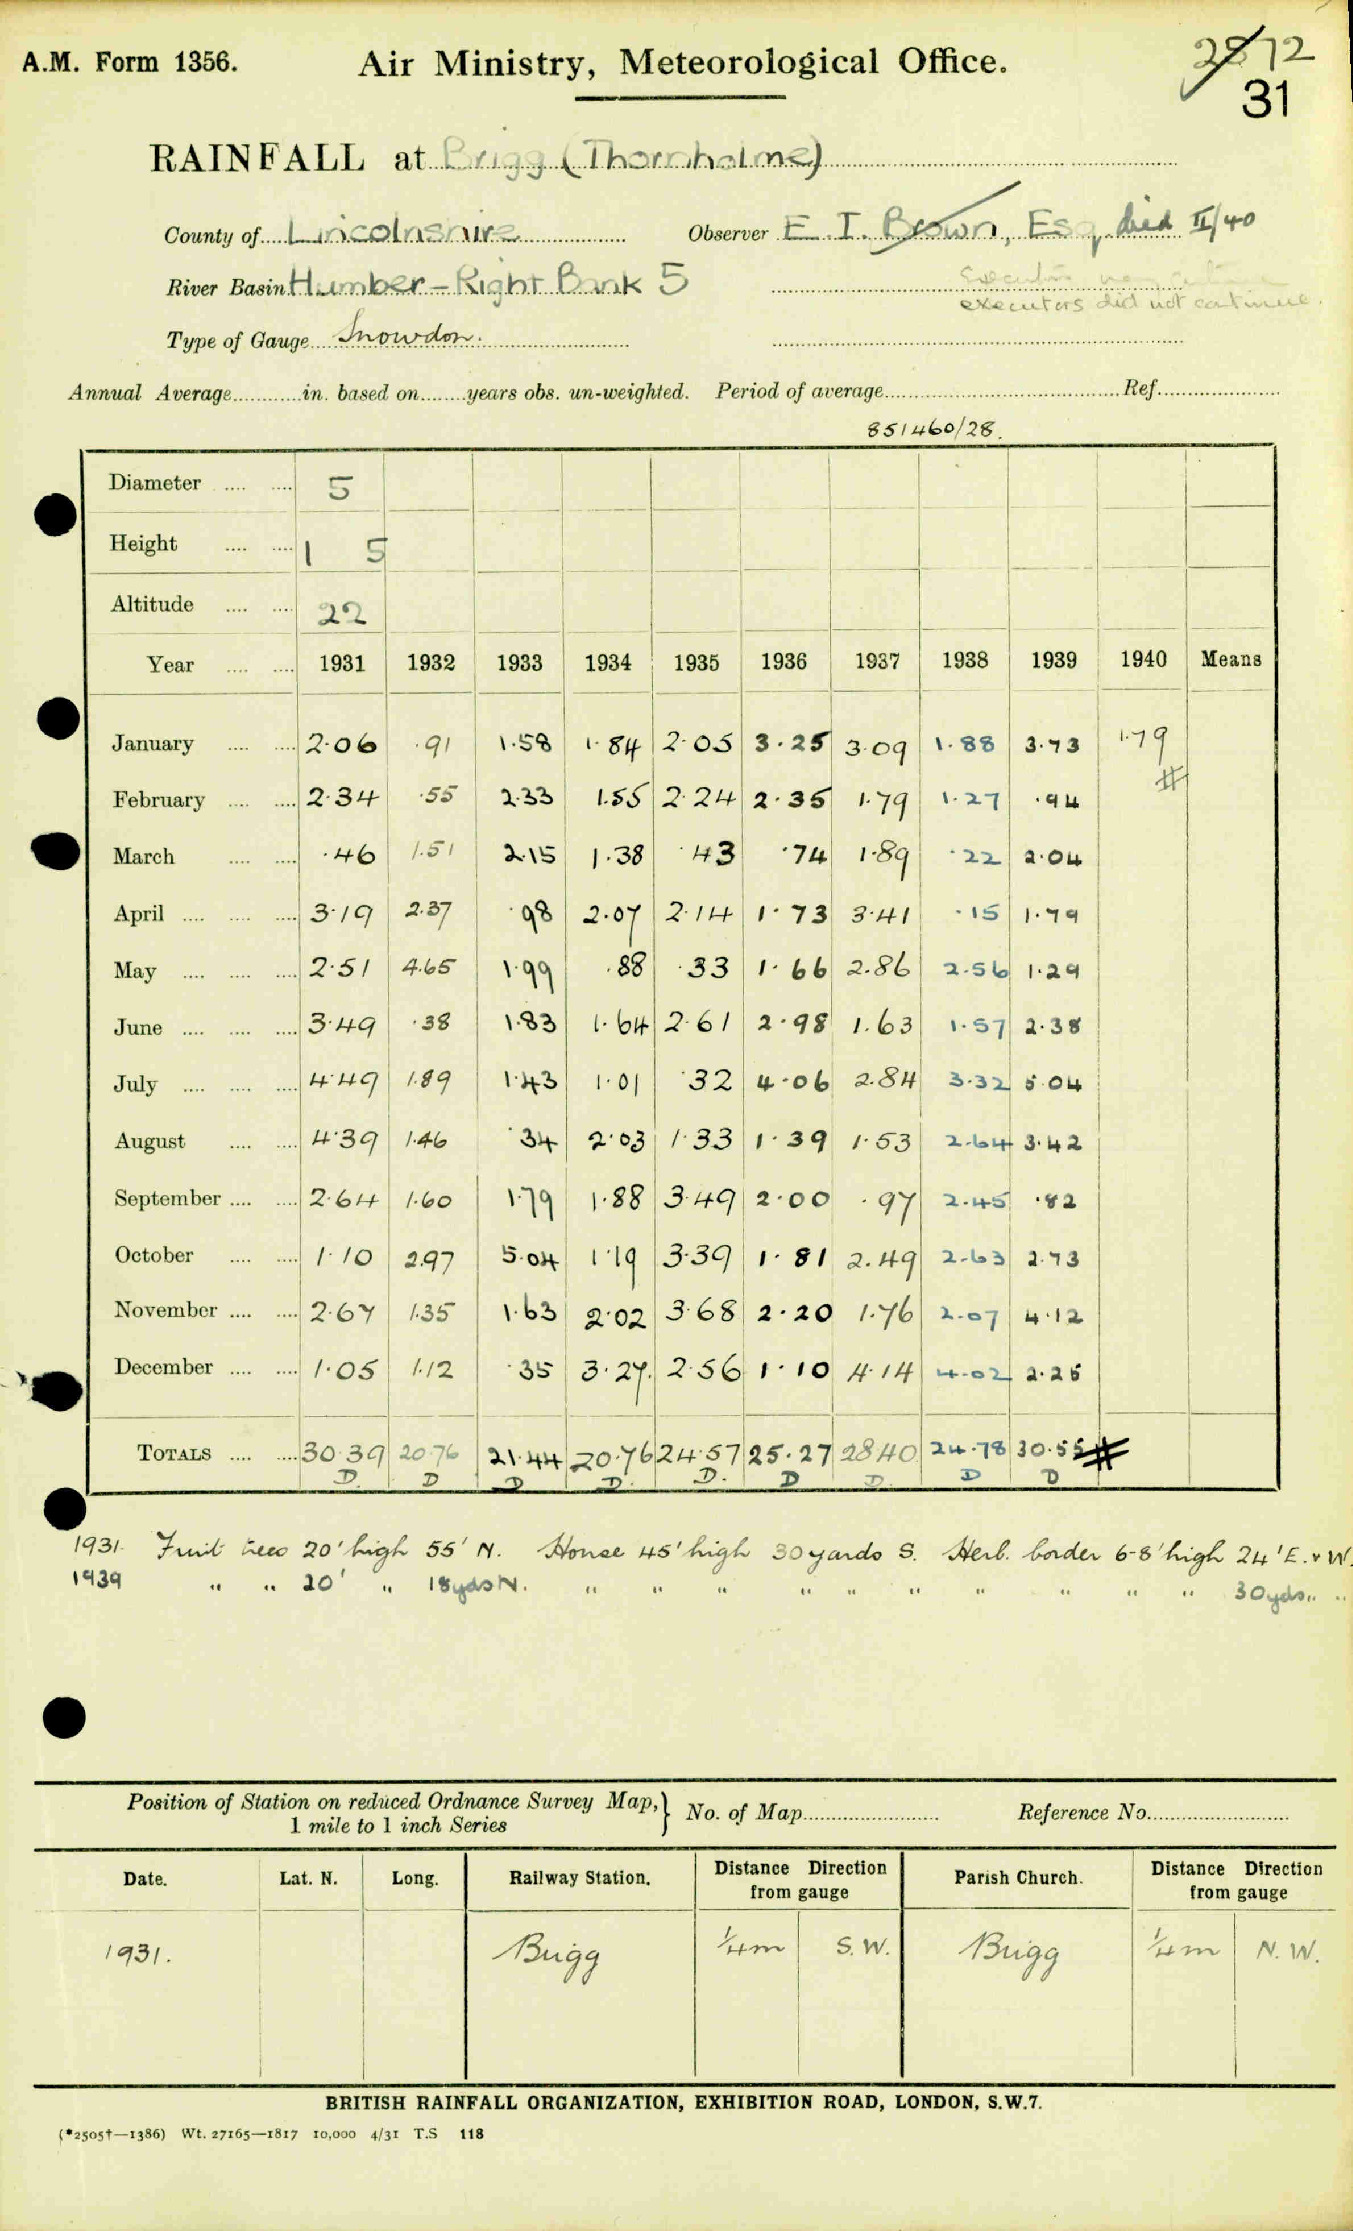 A.M. Form 1356.
Air Ministry, Meteorological Office.
2872
31
RAINFALL at Brigg (Thornholme)
County of Lincolnshire Observer E. I. Brown, Esq. died II/40
River Basin Humber – Right Bank 5
executors did not continue.
Type of Gauge Snowdon.
Annual Average............in. based on........years obs. un-weighted. Period of average........................................Ref......................
851460/28.
Diameter .... .... 5
Height .... .... 1 5
Altitude .... .... 22
Year .... .... 1931 1932 1933 1934 1935 1936 1937 1938 1939 1940 Means
January .... .... 2·06 ·91 1·58 1·84 2·05 3·25 3·09 1·88 3·73 1·79
#
February .... .... 2·34 ·55 2·33 1·55 2·24 2·35 1·79 1·27 ·94
March .... .... ·46 1·51 2·15 1·38 ·43 ·74 1·89 ·22 2·04
April .... .... .... 3·19 2·37 ·98 2·07 2·14 1·73 3·41 ·15 1·79
May .... .... .... 2·51 4·65 1·99 ·88 ·33 1·66 2·86 2·56 1·29
June .... .... .... 3·49 ·38 1·83 1·64 2·61 2·98 1·63 1·57 2·38
July .... .... .... 4·49 1·89 1·43 1·01 ·32 4·06 2·84 3·32 5·04
August .... .... 4·39 1·46 ·34 2·03 1·33 1·39 1·53 2·64 3·42
September .... .... 2·64 1·60 1·79 1·88 3·49 2·00 ·97 2·45 ·82
October .... .... 1·10 2·97 5·04 1·19 3·39 1·81 2·49 2·63 2·73
November .... .... 2·67 1·35 1·63 2·02 3·68 2·20 1·76 2·07 4·12
December .... .... 1·05 1·12 ·35 3·27. 2·56 1·10 4·14 4·02 2·25
TOTALS .... .... 30·39 20·76 21·44 20·76 24·57 25·27 28·40 24·78 30·55 #
D. D D D. D. D D. D D
1931. Fruit trees 20' high 55' N. House 45' high 30 yards S. Herb. border 6-8' high 24' E. & W.
1939 " " 20' " 18 yds N. " " " " " " " " " " 30 yds " "
Position of Station on reduced Ordnance Survey Map, 1 mile to 1 inch Series } No. of Map.................... Reference No....................
Date. Lat. N. Long. Railway Station. Distance Direction from gauge Parish Church. Distance Direction from gauge
1931. Brigg 1/4 m S.W. Brigg 1/4 m N.W.
BRITISH RAINFALL ORGANIZATION, EXHIBITION ROAD, LONDON, S.W.7.
(*2505†—1386) Wt. 27165—1817 10,000 4/31 T.S 118